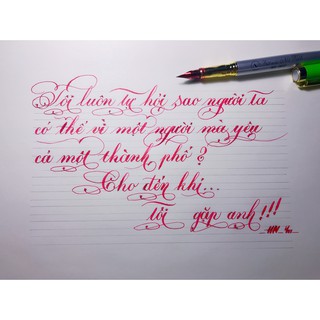 Tôi luôn tự hỏi sao người ta
có thể vì một người mà yêu
cả một thành phố ?
Cho đến khi...
Tôi gặp anh!!!